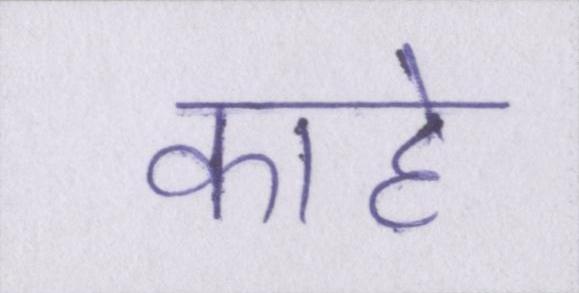 काहे